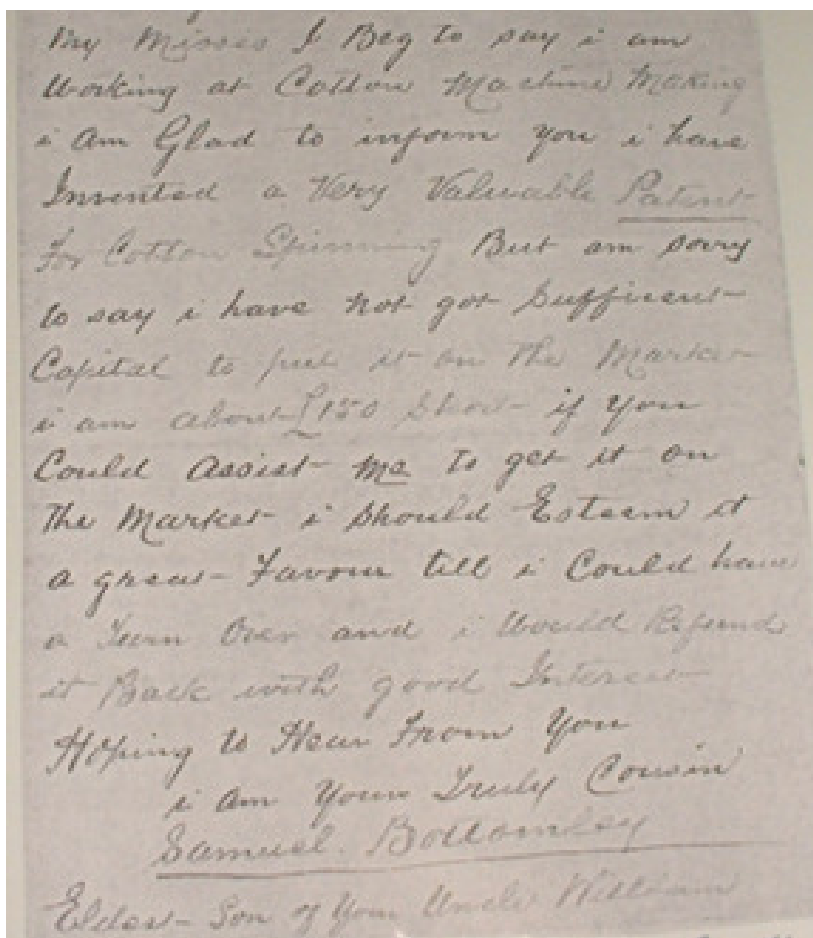 My Missis I Beg to say i am
Working at Cotton Machine Making
i Am Glad to inform you i have
Invented a Very Valuable Patent
For Cotton Spinning But am sorry
to say i have not got Sufficent
Capital to put it on The Market
i am about £150 Short if you
Could Assist me to get it on
The Market i Should Esteem it
a great Favour till i Could have
a Turn Over and i Would Refund
it Back with good Interest
Hoping to Hear From You
i am Your Truly Cousin
Samuel. Bottomley
Elder Son of Your Uncle William